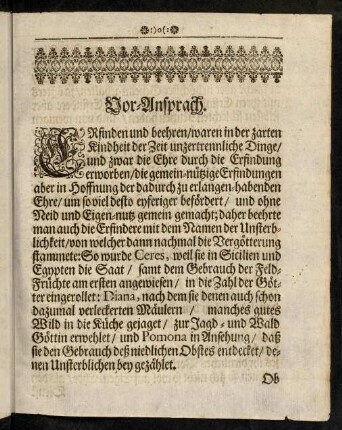 :)o(:
Vor-Ansprach.
ERfinden und beehren/waren in der zarten
Kindheit der Zeit unzertrennliche Dinge/
und zwar die Ehre durch die Erfindung
erworben/die gemein-nützige Erfindungen
aber in Hoffnung der dadurch zu erlangen-habenden
Ehre/um so viel desto eyferiger befördert/ und ohne
Neid und Eigen-nutz gemein gemacht; daher beehrte
man auch die Erfindere mit dem Namen der Unsterb-
lichkeit/von welcher dann nachmal die Vergötterung
stammete: So wurde Ceres, weil sie in Sicilien und
Egypten die Saat/ samt dem Gebrauch der Feld-
Früchte am ersten angewiesen/ in die Zahl der Göt-
ter eingerollet: Diana, nach dem sie denen auch schon
dazumal verleckerten Mäulern/ manches gutes
Wild in die Küche gejaget/ zur Jagd- und Wald
Göttin erwehlet/ und Pomona in Ansehung/ daß
sie den Gebrauch deß niedlichen Obstes entdecket/ de-
nen Unsterblichen bey gezählet.
Ob